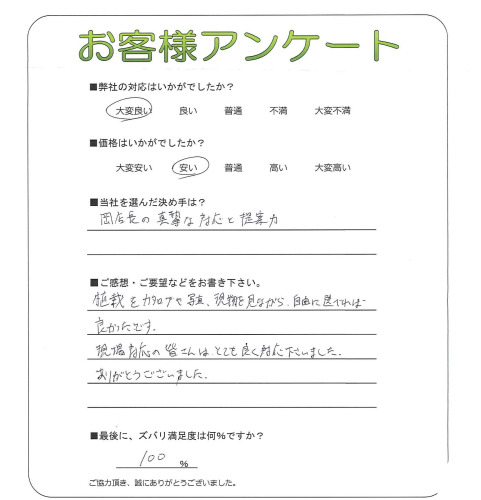 お客様アンケート
■弊社の対応はいかがでしたか?
大変良い 良い 普通 不満 大変不満
■価格はいかがでしたか?
大変安い 安い 普通 高い 大変高い
■当社を選んだ決め手は?
岡店長の真摯な対応と提案力
■ご感想・ご要望などをお書き下さい。
植栽をカタログや写真、現物を見ながら、自由に選べれば
良かったです。
現場対応の皆さんはとても良く対応下さいました。
ありがとうございました。
■最後に、ズバリ満足度は何%ですか?
100 %
ご協力頂き、誠にありがとうございました。